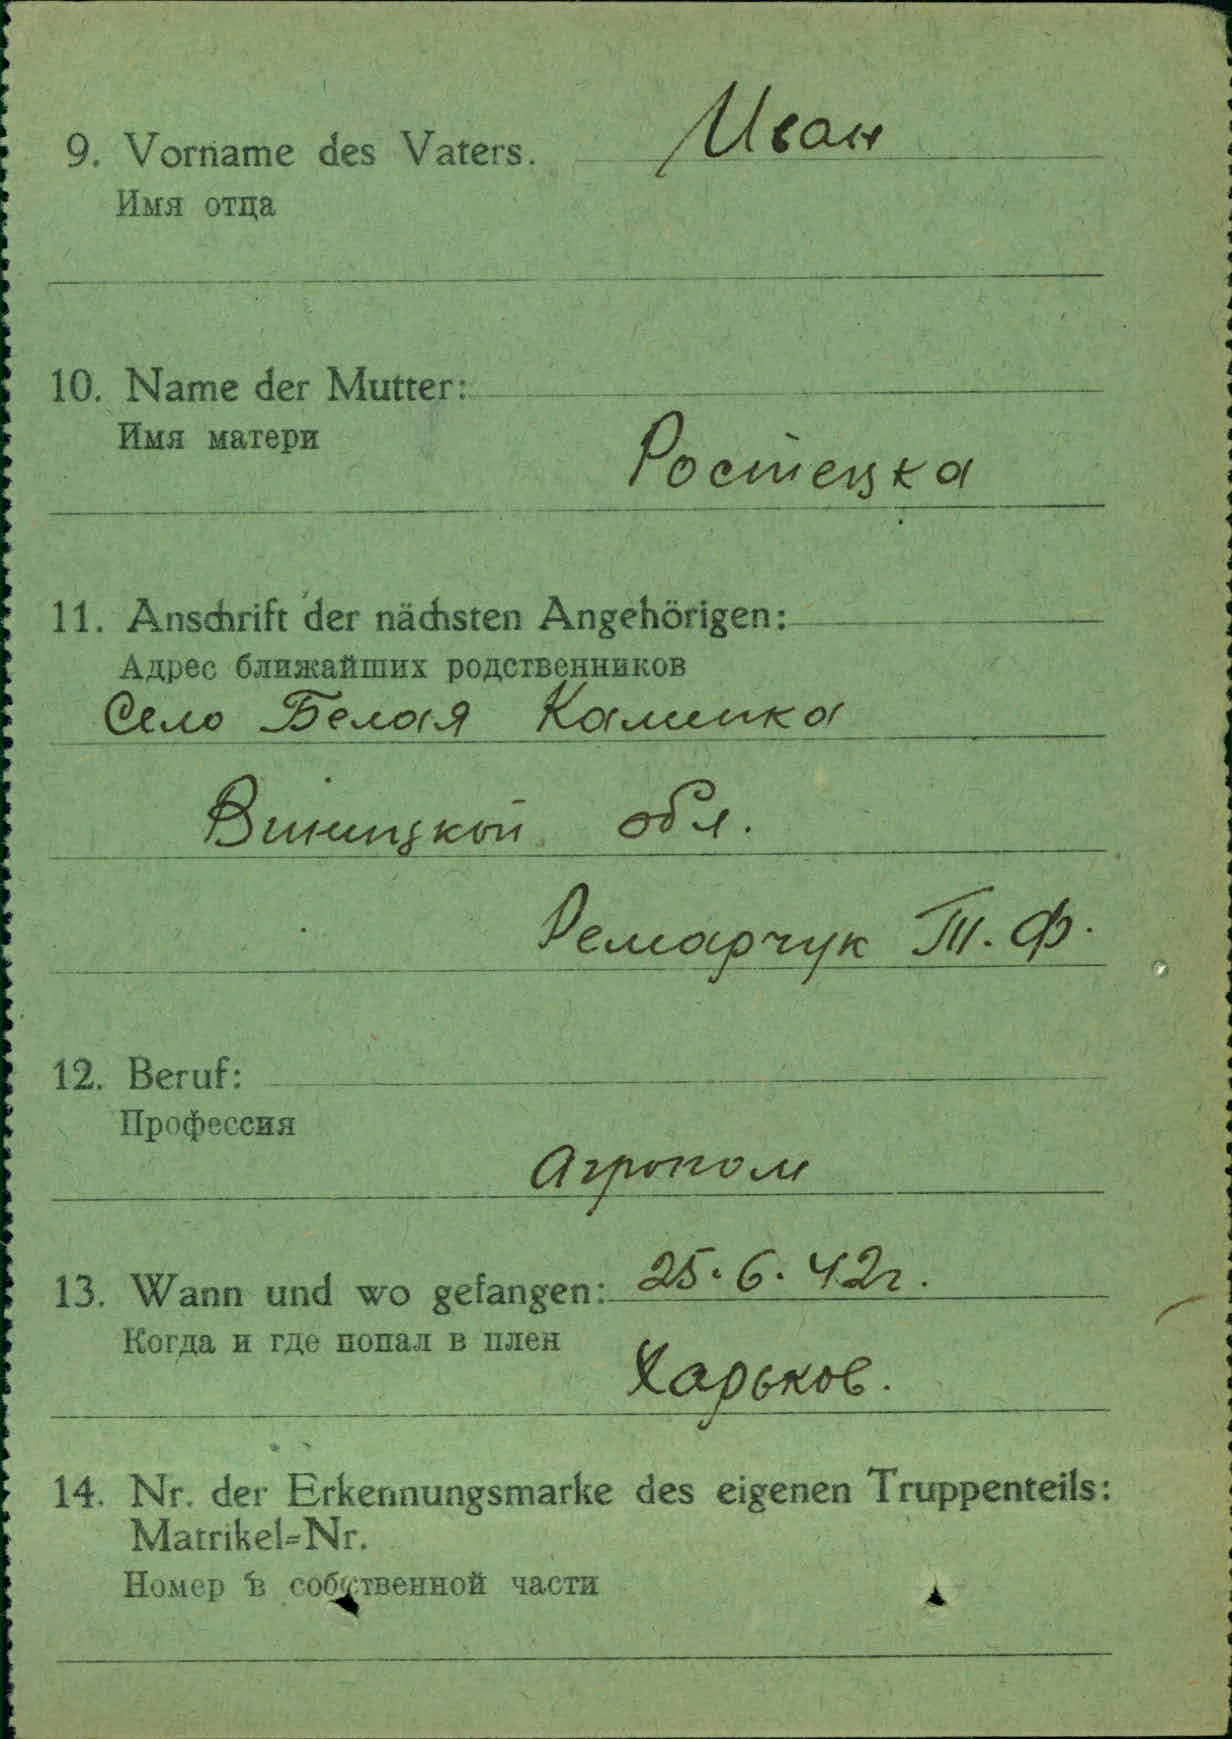 9. Vorname des Vaters. Иван
Имя отца
10. Name der Mutter:
Имя матери
Ростецка
11. Anschrift der nächsten Angehörigen:
Адрес ближайших родственников
Село Белая Каминка
Виницкой обл.
Ремарчук Т. Ф.
12. Beruf:
Профессия
Агроном
13. Wann und wo gefangen: 25. 6. 42г.
Когда и где попал в плен
Харьков.
14. Nr. der Erkennungsmarke des eigenen Truppenteils:
Matrikel=Nr.
Номер в собственной части